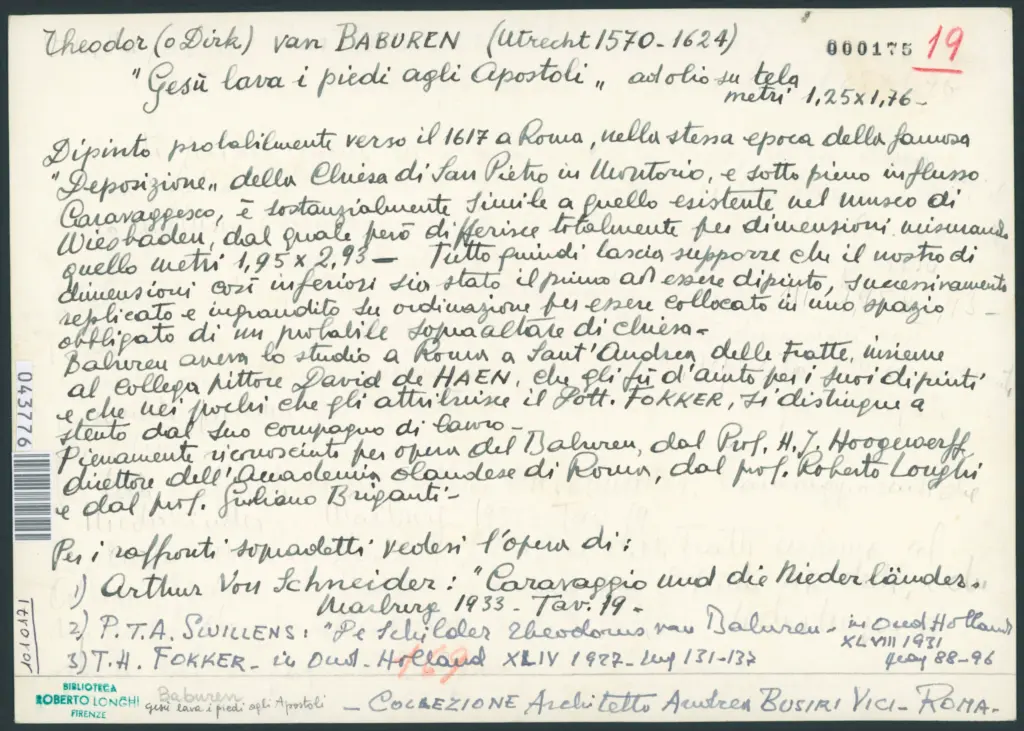 Theodor (o Dirk) van BABUREN (Utrecht 1570-1624)
000175 19
"Gesù lava i piedi agli Apostoli„ ad olio su tela
metri 1,25x1,76-
Dipinto probabilmente verso il 1617 a Roma, nella stessa epoca della famosa
"Deposizione„ della Chiesa di San Pietro in Montorio, e sotto pieno influsso
Caravaggesco, è sostanzialmente simile a quello esistente nel museo di
Wiesbaden, dal quale però differisce totalmente per dimensioni misurando
quello metri 1,95 x 2,93 - Tutto quindi lascia supporre che il nostro di
dimensioni così inferiori sia stato il primo ad essere dipinto, successivamente
replicato e ingrandito su ordinazione per essere collocato in uno spazio
obbligato di un probabile sopraaltare di chiesa-
Baburen aveva lo studio a Roma a Sant'Andrea delle Fratte, insieme
al collega pittore David de HAEN, che gli fù d'aiuto per i suoi dipinti
e che nei pochi che gli attribuisce il Dott. FOKKER, si distingue a
stento dal suo compagno di lavoro-
Pienamente riconosciuto per opera del Baburen, dal Prof. H.J. Hoogewerff
direttore dell'Accademia olandese di Roma, dal prof. Roberto Longhi
e dal prof. Giuliano Briganti-
Per i raffronti sopradetti vedersi l'opera di:
1) Arthur Von Schneider: "Caravaggio und die Niederländer„
Marburg 1933 - Tav. 19-
2) P.T.A. SWILLENS: "De Schilder Theodorus van Baburen- in Oud Holland
XLVIII 1931
pag 88-96
3) T.H. FOKKER - in Oud-Holland XLIV 1927- pag 131-137
169
BIBLIOTECA
ROBERTO LONGHI
FIRENZE
Baburen
Gesù lava i piedi agli Apostoli
- COLLEZIONE Architetto Andrea BUSIRI VICI- ROMA-
043776